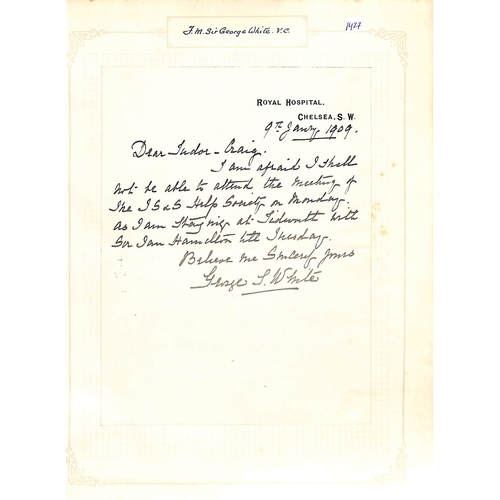 F.M. Sir George White. V.C.
1427
ROYAL HOSPITAL,
CHELSEA, S.W.
9th Janry 1909.
Dear Tudor-Craig.
I am afraid I shall
not be able to attend the meeting of
the I S & S Help Society on Monday.
as I am staying at Tidworth with
Sir Ian Hamilton till Tuesday.
Believe me Sincerely yours
George S. White